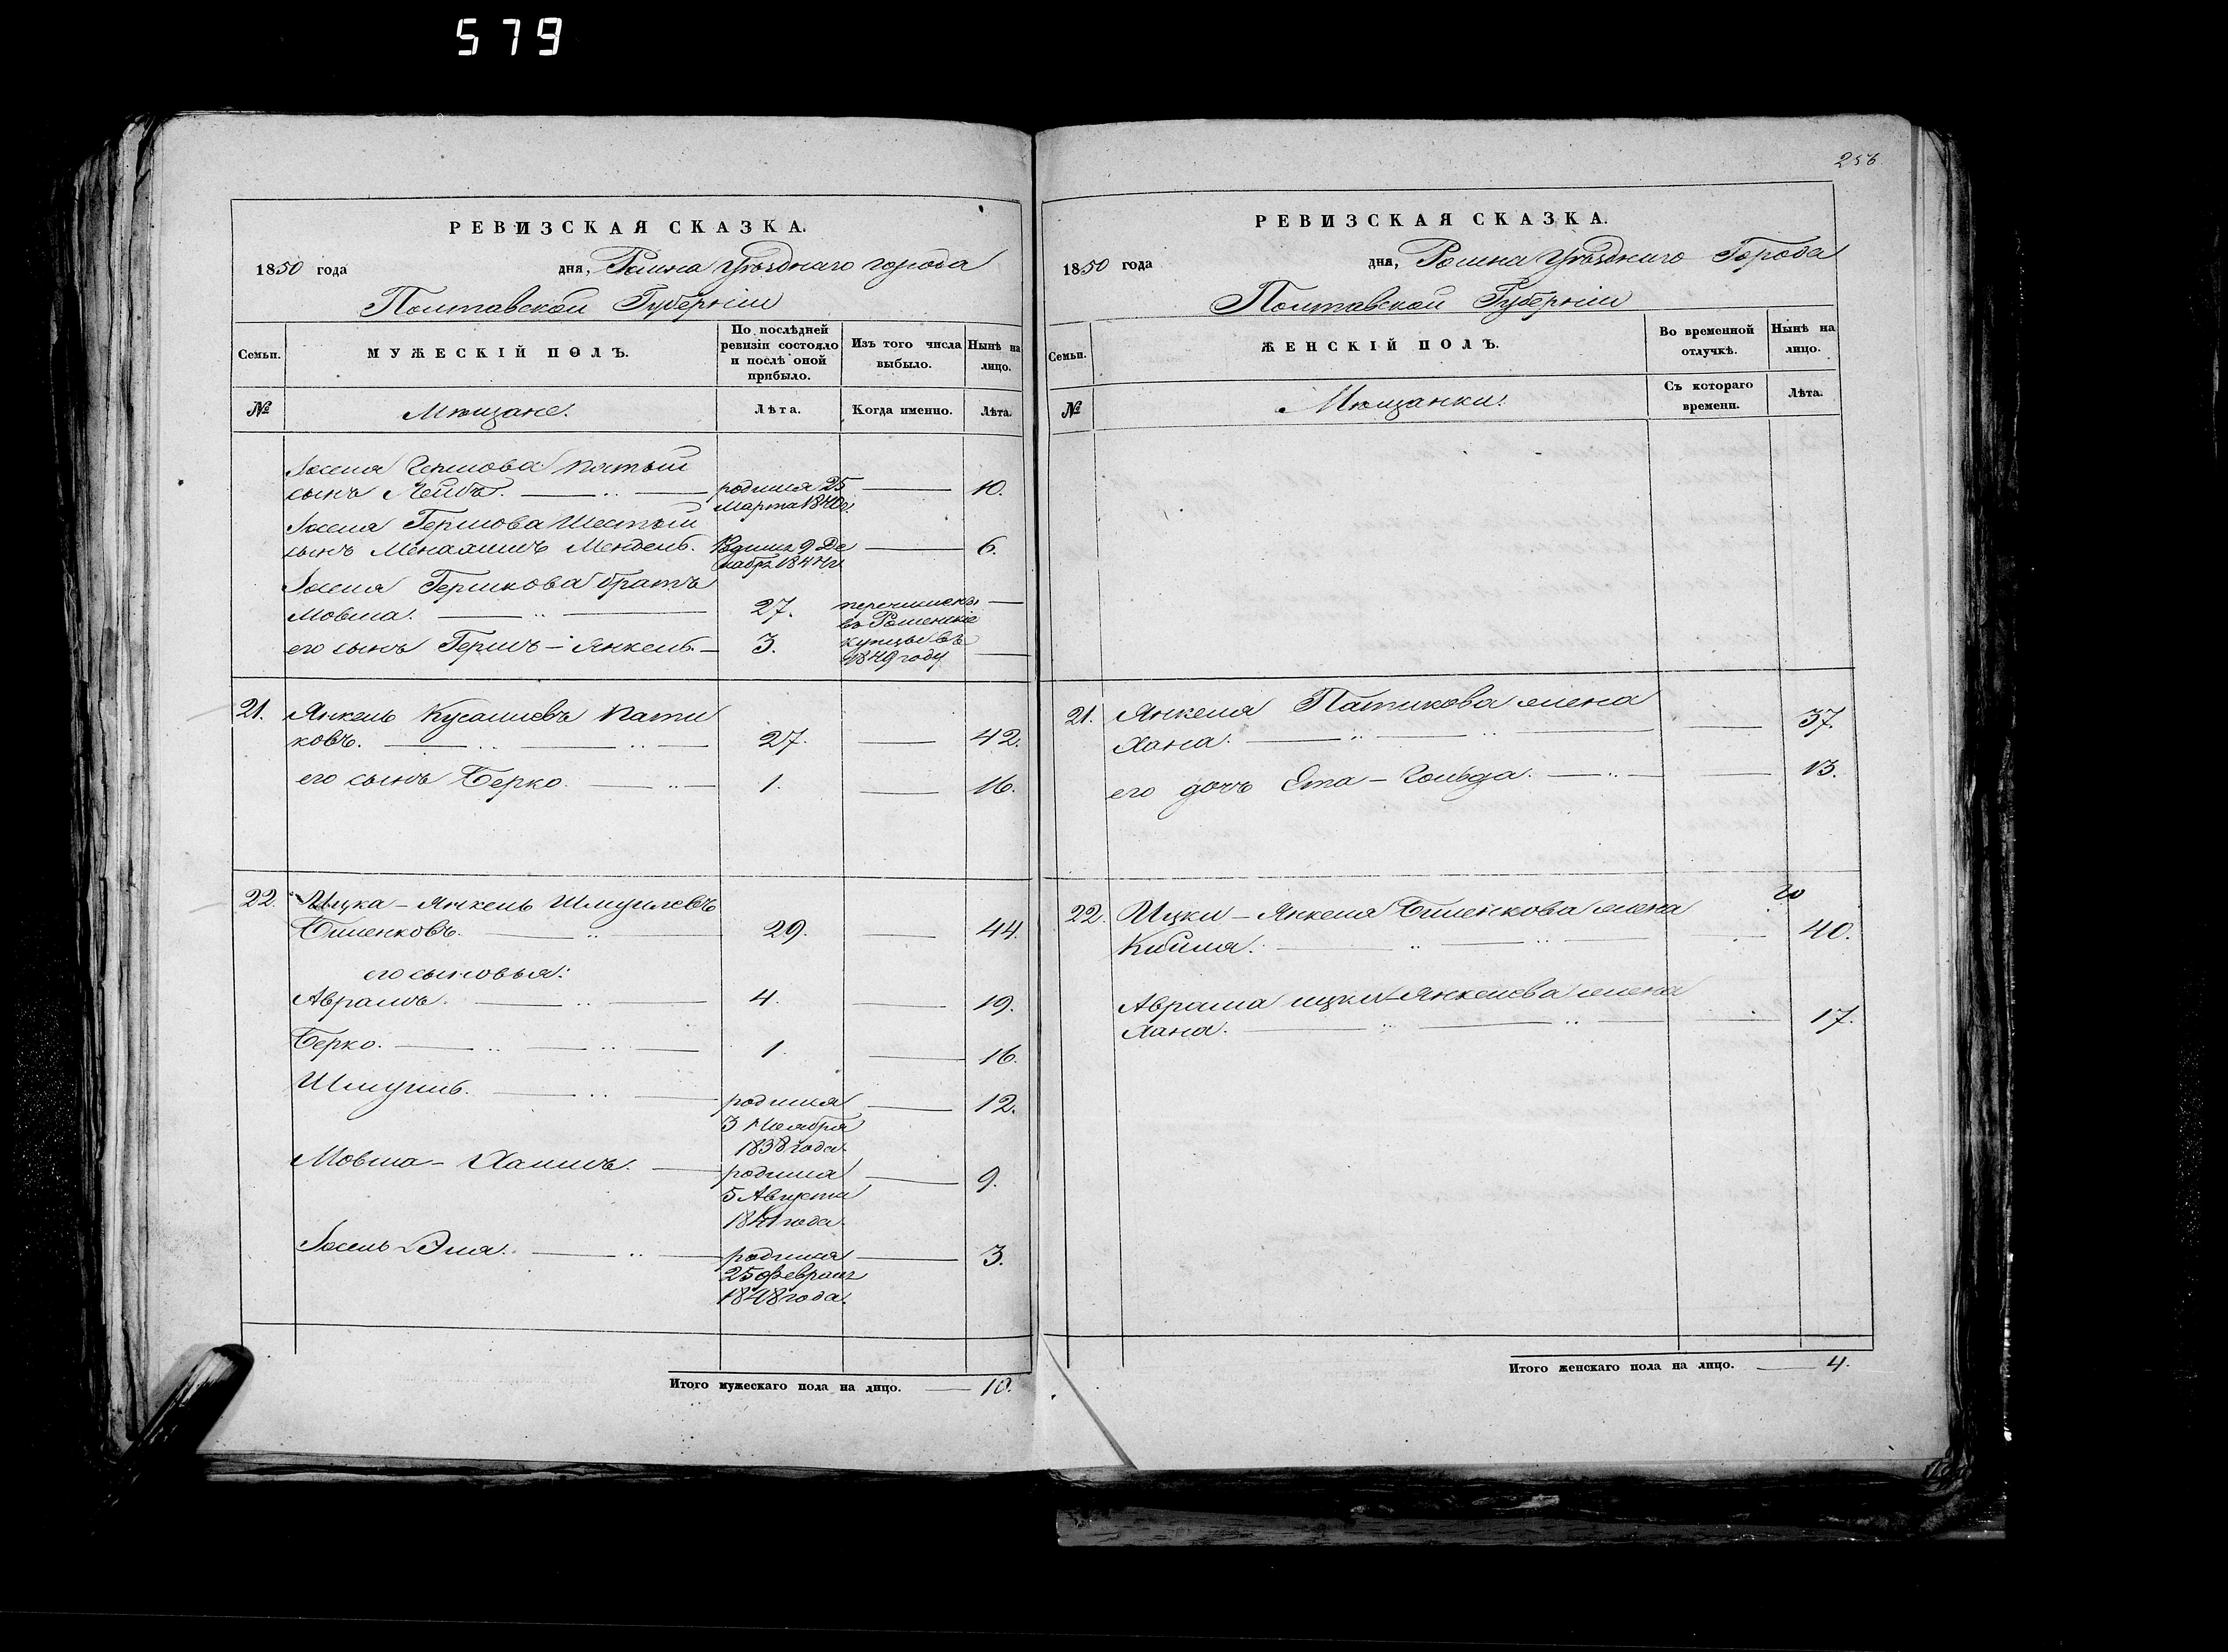 579
256
РЕВИЗСКАЯ СКАЗКА.
1850 года дня, Ромна Уѣзднаго города
Полтавской Губерніи
Семьи. МУЖЕСКІЙ ПОЛЪ. По послѣдней ревизіи состояло и послѣ оной прибыло. Изъ того числа выбыло. Нынѣ на лицо.
№ Мѣщане. Лѣта. Когда именно. Лѣта.
пятый
сынъ Лейба. родился 25 10.
Марта 1840 г.
Гершова Шестый
сынъ Менахимъ Мендель. Родился 9 Де 6.
кабря 1844 г.
Гершкова братъ
Мовша. 27. перечисленъ
въ Роменскіе
его сынъ Гершъ-Янкель. 3. купцы въ
1849 году
21. Янкель Пати
ковъ. 27. 42.
его сынъ Берко. 1. 16.
22. Ицка-Янкель Шмуилевъ
Биленковъ. 29. 44.
его сыновья:
Абрамъ. 4. 19.
Берко. 1. 16.
Шмуиль. родился 12.
3 Ноября
1838 года.
Мовша-Хаимъ. родился 9.
5 Августа
1841 года.
Эля. родился 3.
25 Февраля
1848 года.
Итого мужескаго пола на лицо. 10.
РЕВИЗСКАЯ СКАЗКА.
1850 года дня, Ромна Уѣзднаго Города
Полтавской Губерніи
Семьи. ЖЕНСКІЙ ПОЛЪ. Во временной отлучкѣ. Нынѣ на лицо.
№ Мѣщанки. Съ котораго времени. Лѣта.
21. Янкеля Патикова жена
Хана. 37.
его дочь Ета-Гольда. 13.
22. Ицки-Янкеля Биленкова жена
40.
Абрама Ицки-Янкелева жена
Хана. 17.
Итого женскаго пола на лицо. 4.